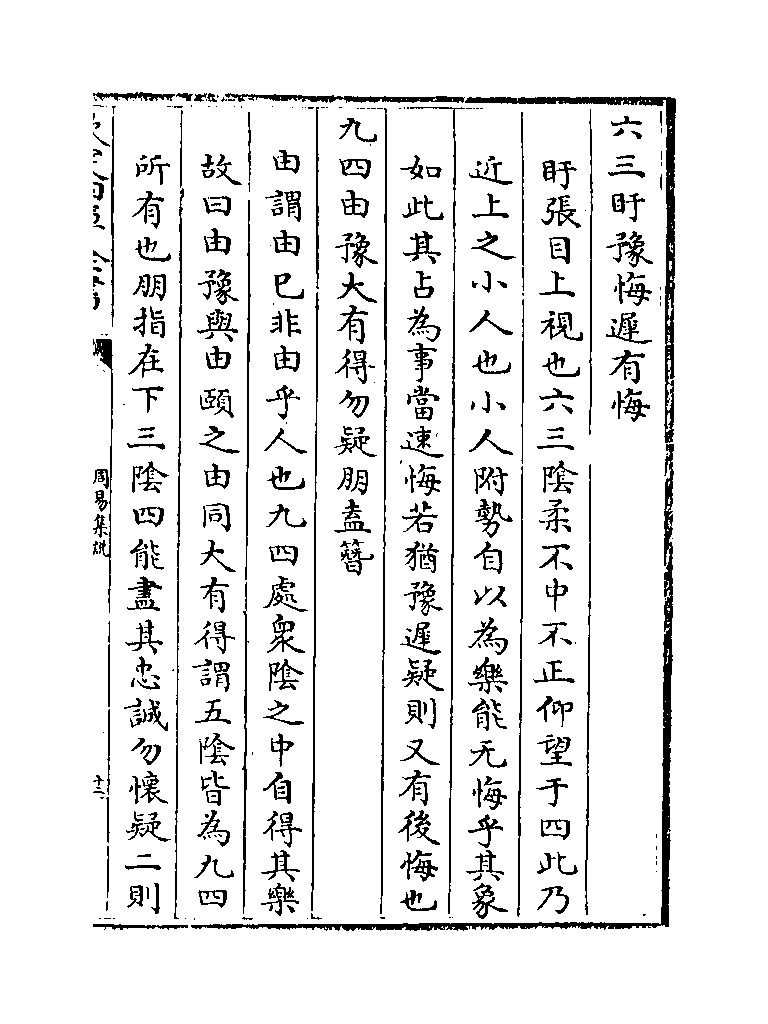 六三盱豫悔遲有悔
盱張目上視也六三陰柔不中不正仰望于四此乃
近上之小人也小人附勢自以為樂能无悔乎其象
如此其占為事當速悔若猶豫遲疑則又有後悔也
九四由豫大有得勿疑朋盍簪
由謂由已非由乎人也九四處衆陰之中自得其樂
故曰由豫與由頤之由同大有得謂五陰皆為九四
所有也朋指在下三陰四能盡其忠誠勿懷疑二則
周易集說